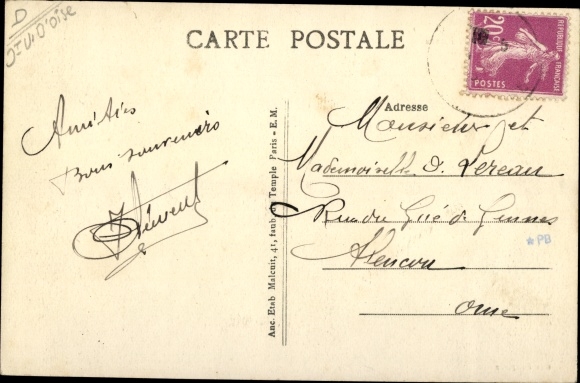 D
Ct V. D'Oise
CARTE POSTALE
20c
REPUBLIQUE FRANÇAISE
POSTES
Amitiés
Bons souvenirs
Anc. Etab Malcuit, 41, faub. du Temple Paris - E. M.
Adresse
Monsieur et
Mademoiselle D.
Rue du Gué de Gennes
Alencon
Orne
*PB